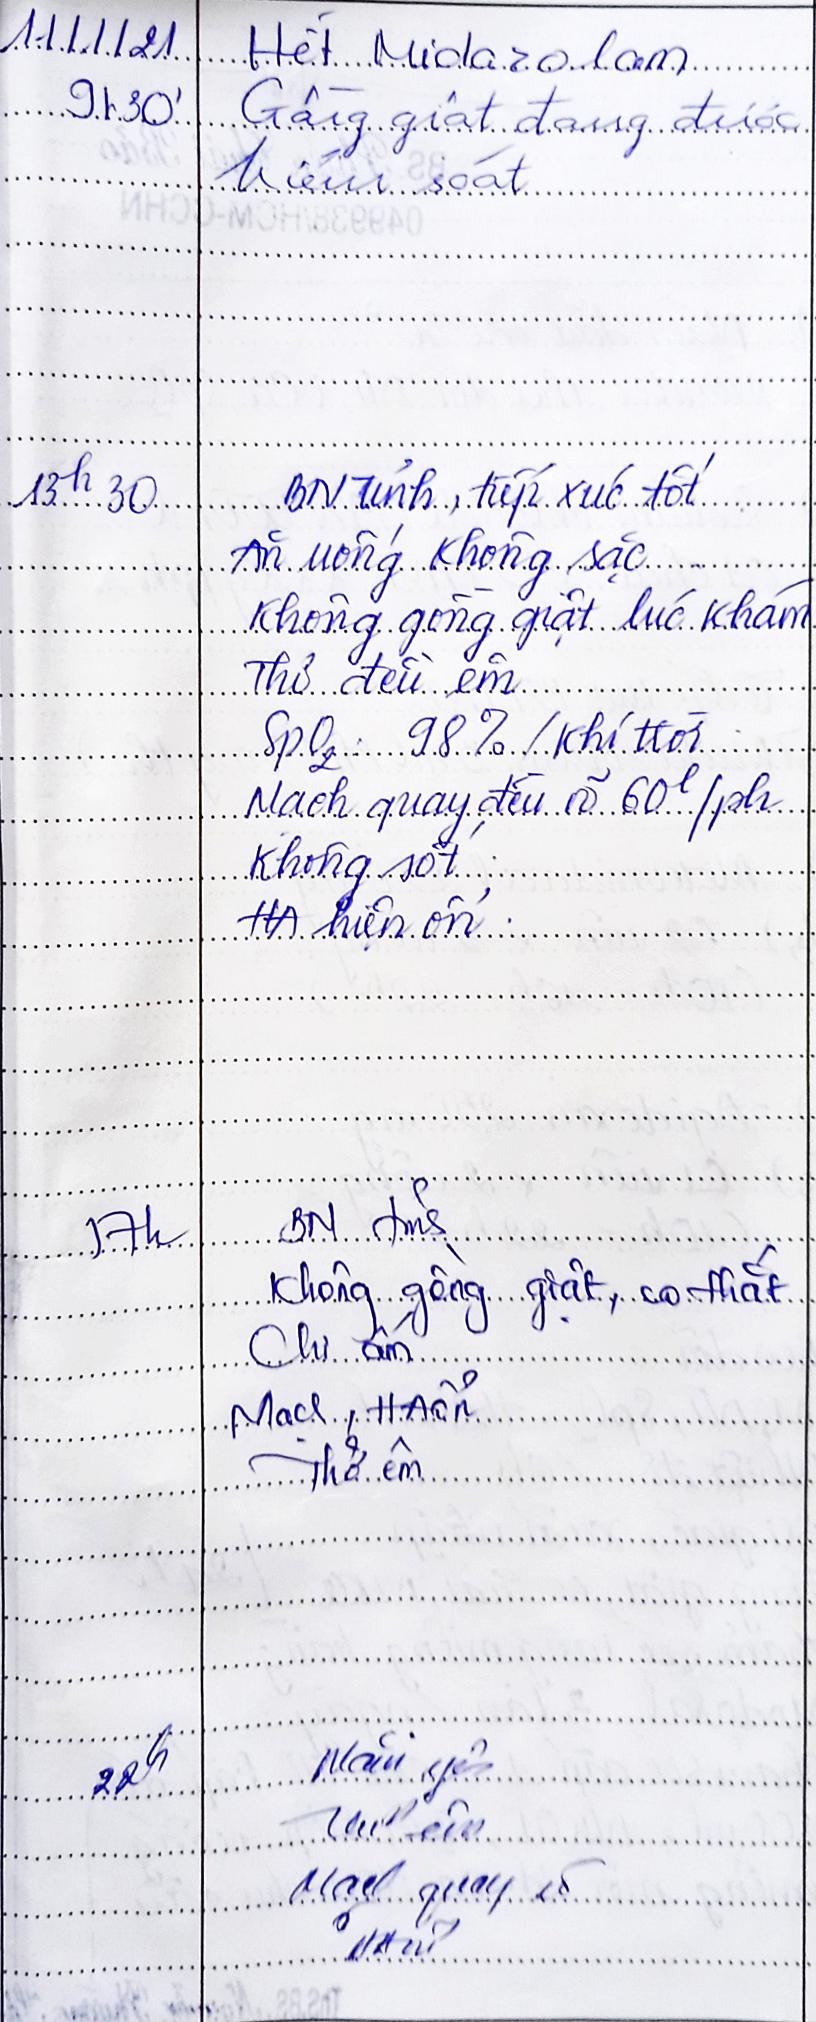 11/1/21 Hết Midazolam
9h30' Gồng giật đang được
kiểm soát
13h30 BN tỉnh, tiếp xúc tốt
Ăn uống không sặc
Không gồng giật lúc khám
Thở đều êm
SpO2: 98% / khí trời
Mạch quay đều rõ 60l/ph
Không sốt
HA hiện ổn.
17h BN tỉnh
Không gồng giật, co thắt
Chi ấm
Mạch, HA ổn
Thở êm
22h Nằm yên
Thở êm
Mạch quay rõ
HA ổn